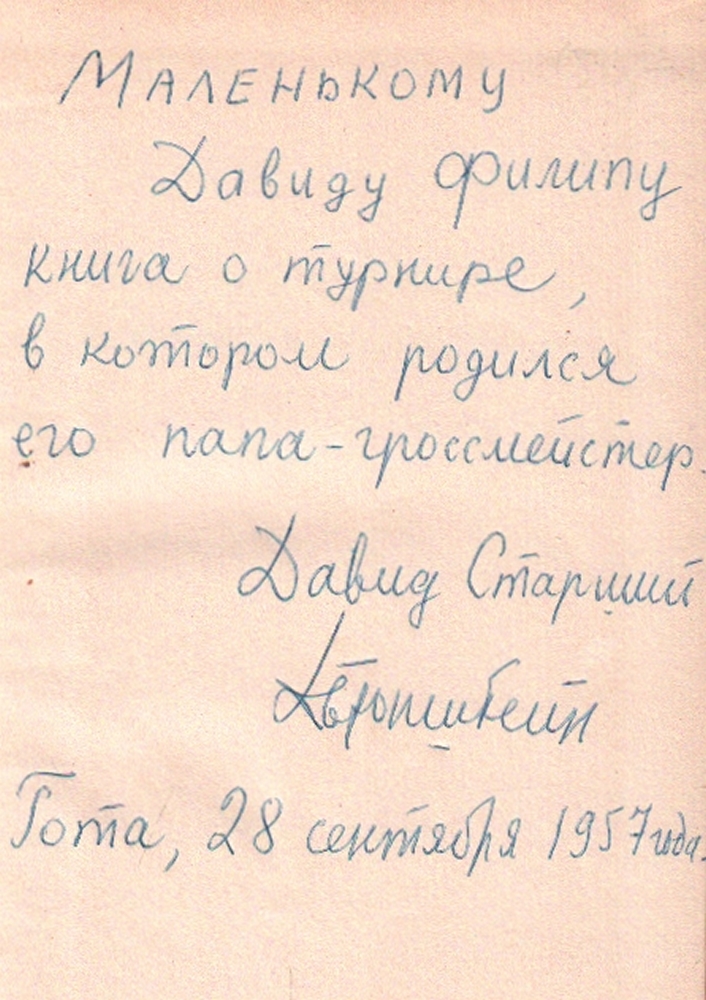 Маленькому
Давиду Филипу
книга о турнире,
в котором родился
его папа-гроссмейстер.
Давид Старший
ДБронштейн
Гота, 28 сентября 1957 года.